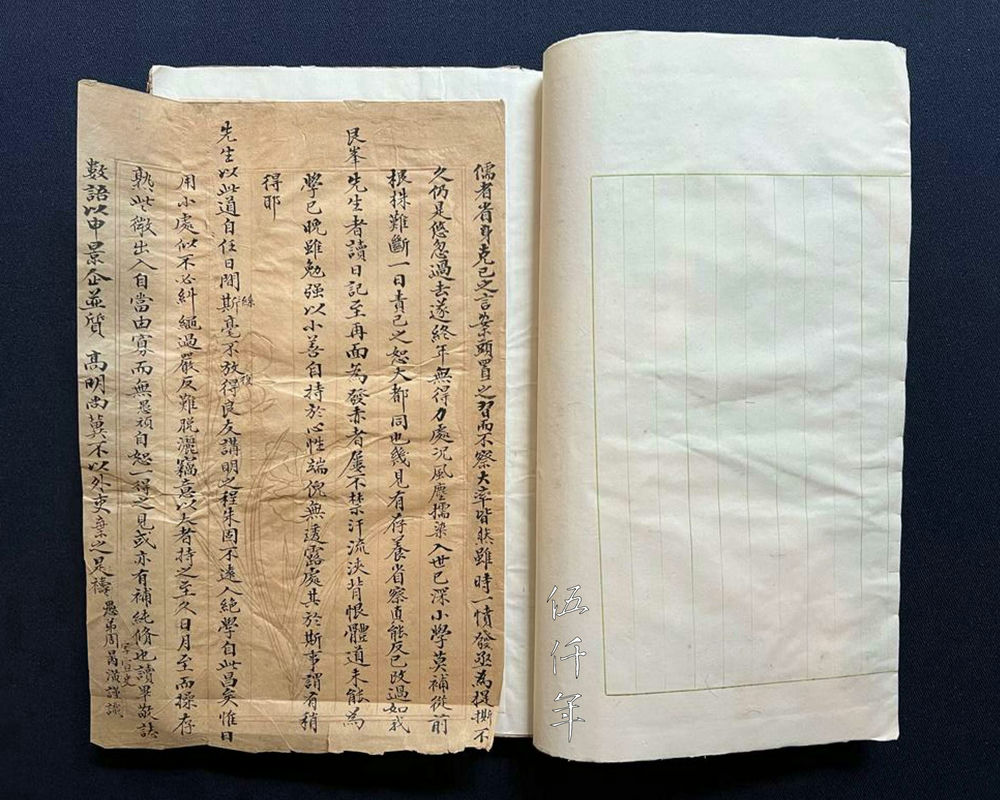 儒者省身克己之言案頭置之習而不察大率皆然雖時一憤發亟為提撕不
久仍是悠忽過去遂終年無得力處况風塵擩染入世已深小學莫補從前
根株難斷一日責己之恕大都同也幾見有存養省察真能反己改過如我
艮峯先生者讀日記至再面為發赤者屢不禁汗流浹背恨體道未能為
學已晚雖勉强以小善自持於心性端倪無透露處其於斯事謂有稍
得耶
先生以此道自任日間斯毫不放得良友講明之程朱固不遠人絕學自此昌矣惟日
絲
用小處似不必糾繩過嚴反難脫灑竊意以大者持之至久日月至而操存
熟些微出入自當由寡而無愚頑自恕一得之見或亦有補純修也讀畢敬誌
數語以申景企並質 高明尚冀不以外吏棄之是禱 愚弟周 潢謹識
伍仟年